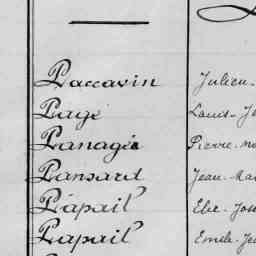 Paccavin Julien
Pagé Louis-J
Panagée Pierre
Pansard Jean-Ma
Pápail Elie-Jose
Papail Emile-Je